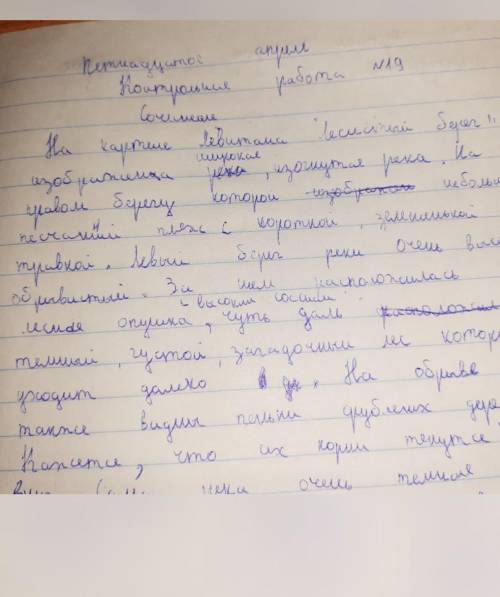 Петнадцатое апреля
Контрольная работа №19
Сочинение
На картине Левитана "Лесистый берег"
широкая
изображенна река, изогнутая река. На
правом берегу которой изображен неболь
песчаный пляж с короткой, зелененькой
травкой. Левый берег реки очень выс
обрывистый. За ним расположилась
с высоким соснами
лесная опушка, чуть даль расположил
темный, густой, загадочный лес котор
уходит далеко. На обрыве
также видны пеньки срубленых дере
Кажется, что их корни тянутся
вниз река очень темная